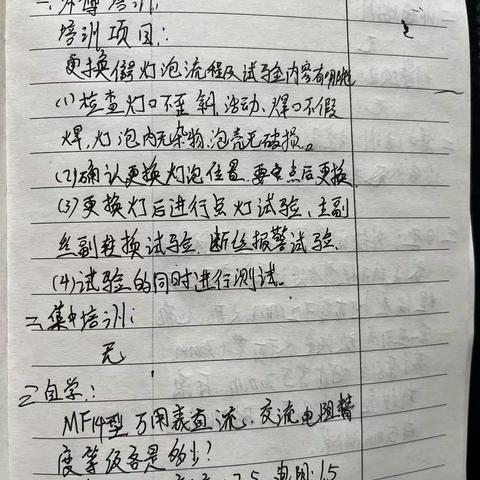 培训项目:
更换信号灯泡流程及试验内容有哪些
(1)检查灯口不歪斜,活动、焊口不假
焊,灯泡内无杂物,泡壳无破损。
(2)确认更换灯泡位置,要点后更换
(3)更换灯后进行点灯试验、主副
丝副转换试验、断丝报警试验.
(4)试验的同时进行测试。
二、集中培训:
无
三自学:
MF14型万用表直流、交流电阻
度等级各是多少?
2.5 电阻:1.5